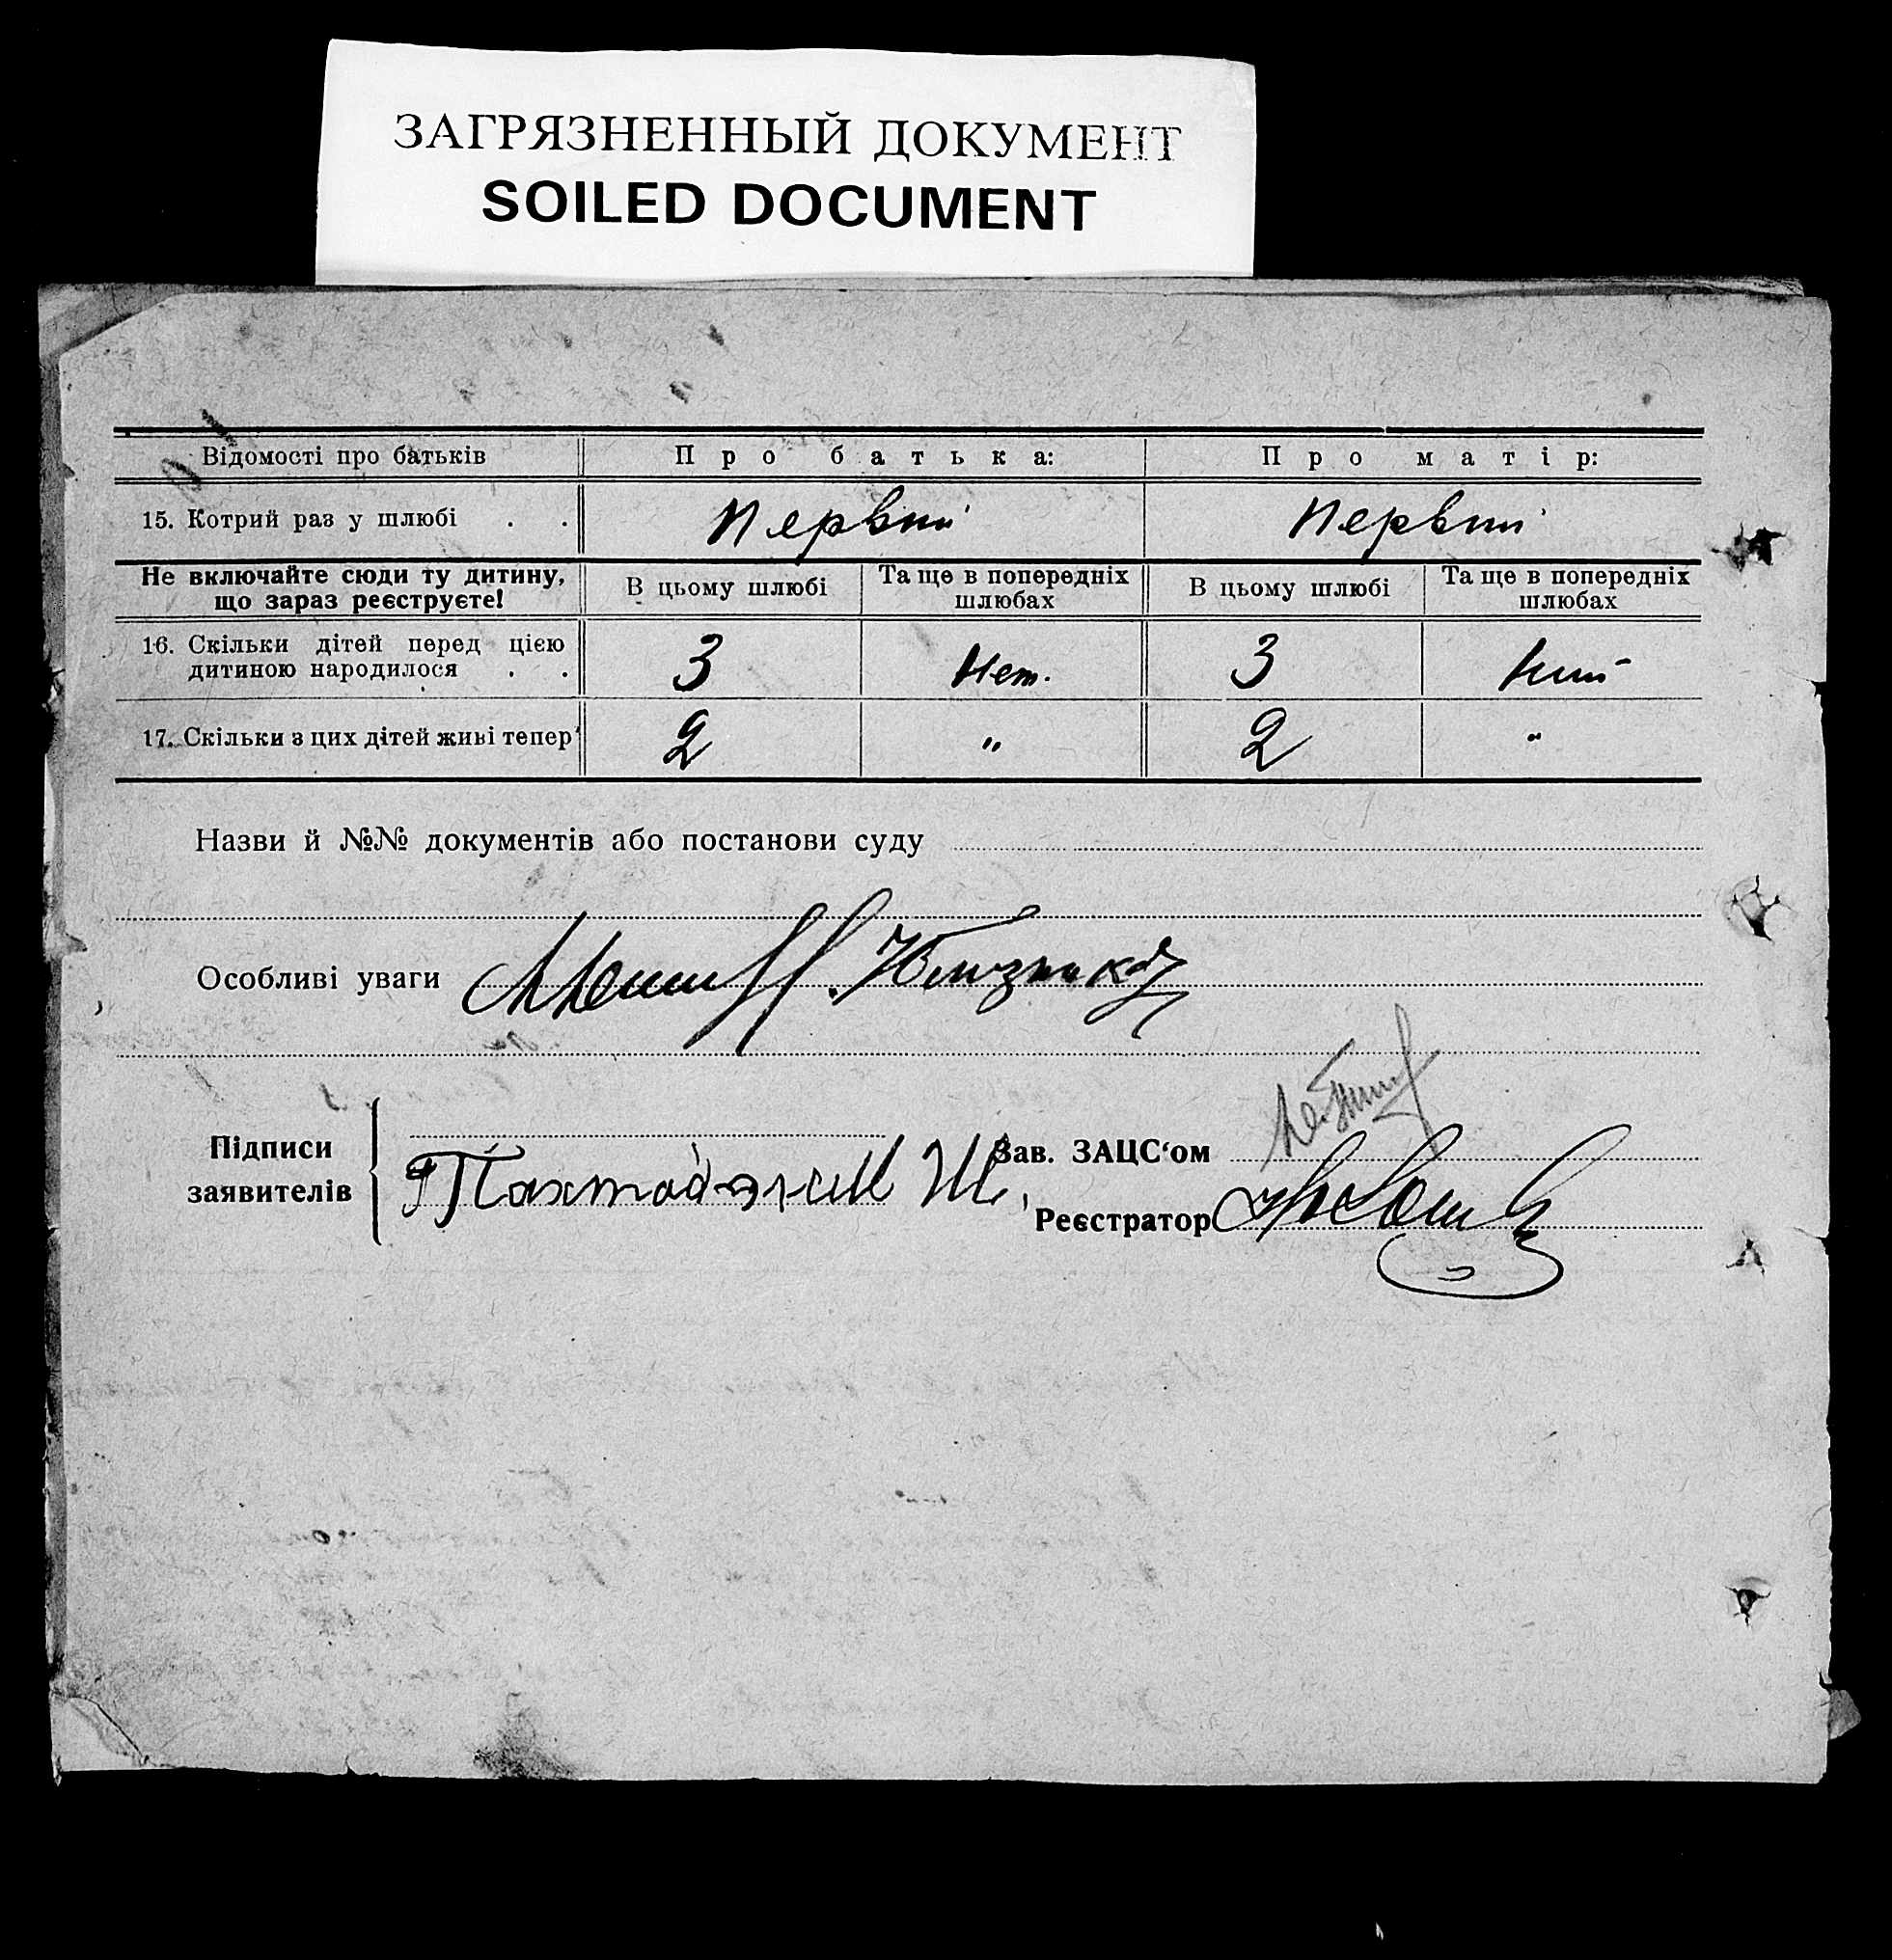 ЗАГРЯЗНЕННЫЙ ДОКУМЕНТ
SOILED DOCUMENT
Відомості про батьків Про батька: Про матір:
15. Котрий раз у шлюбі . . Первый Первый
Не включайте сюди ту дитину, що зараз реєструєте! В цьому шлюбі Та ще в попередніх шлюбах В цьому шлюбі Та ще в попередніх шлюбах
16. Скільки дітей перед цією
дитиною народилося . . 3 Нет. 3 Нит
17. Скільки з цих дітей живі тепер 2 " 2 "
Назви й №№ документів або постанови суду
Особливі уваги
Підписи
заявителів
Зав. ЗАЦС‘ом
Реєстратор